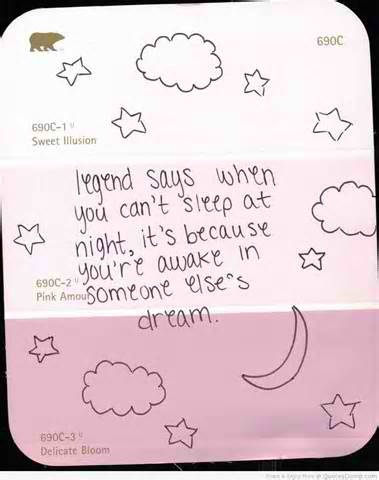 690C
690C-1 U
Sweet Illusion
legend says when
you can't sleep at
night, it's because
you're awake in
someone else's
dream.
690C-2 U
Pink Amou
690C-3 U
Delicate Bloom
QuotesDump.com